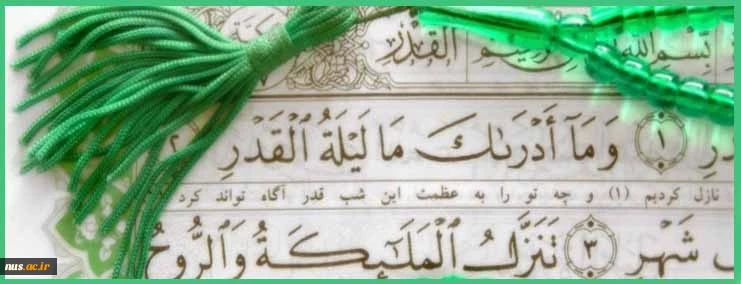 بِسْمِ اللّٰهِ
الْقَدْرِ
١ وَمَآ أَدْرَىٰكَ مَا لَيْلَةُ ٱلْقَدْرِ ٢
نازل کردیم (۱) و چه تو را به عظمت این شب قدر آگاه تواند کرد
شَهْرٍ ٣ تَنَزَّلُ ٱلْمَلَـٰٓئِكَةُ وَٱلرُّوحُ
nus.ac.ir